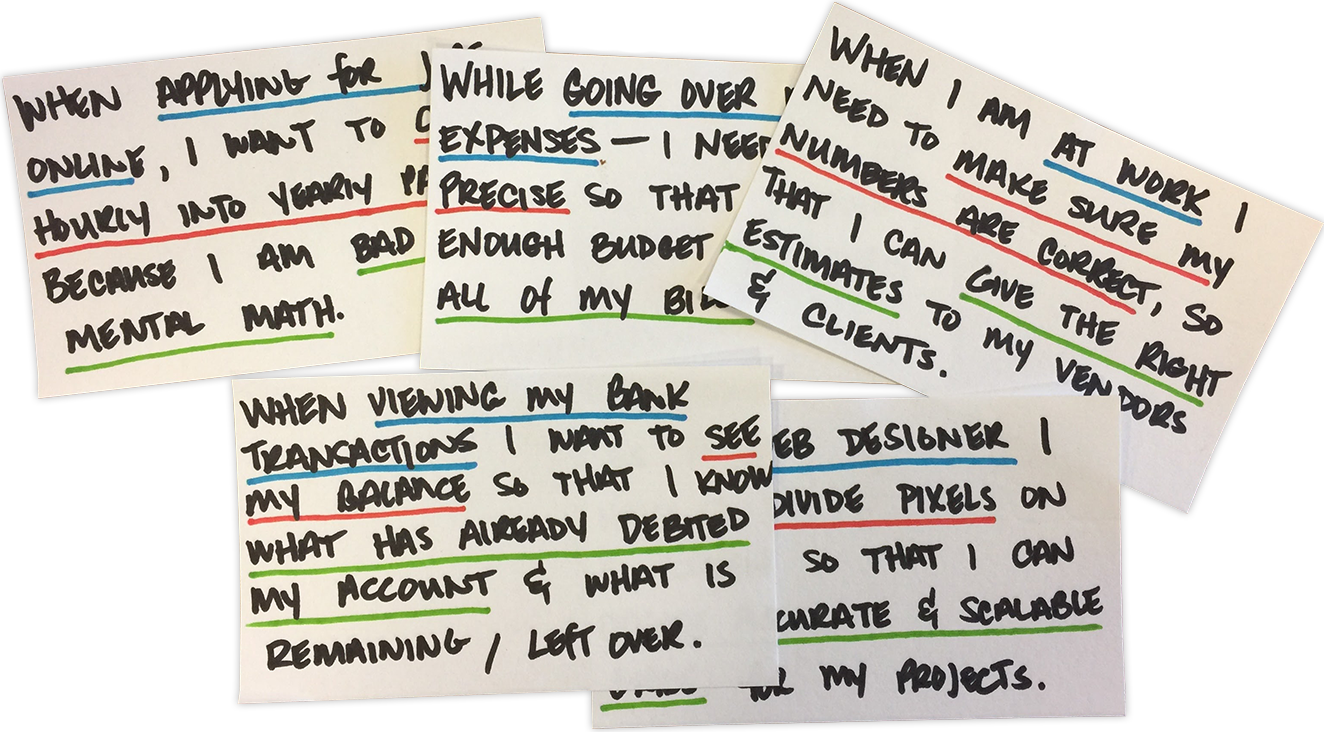 WHEN APPLYING for
ONLINE, I WANT TO
HOURLY INTO YEARLY
BECAUSE I AM BAD
MENTAL MATH.
WHILE GOING OVER
EXPENSES — I NEED
PRECISE SO THAT
ENOUGH BUDGET
ALL Of my
WHEN I AM AT WORK I
NEED TO MAKE SURE my
NUMBERS ARE CORRECT, SO
THAT I CAN GIVE THE RIGHT
ESTIMATES TO MY VENDORS
& CLIENTS.
WHEN VIEWING my BANK
TRANSACTIONS I WANT TO SEE
my BALANCE SO THAT I KNOW
WHAT HAS ALREADY DEBITED
my ACCOUNT & WHAT IS
REMAINING / LEFT OVER.
EB DESIGNER I
DIVIDE PIXELS ON
SO THAT I CAN
CURATE & SCALABLE
my PROJECTS.